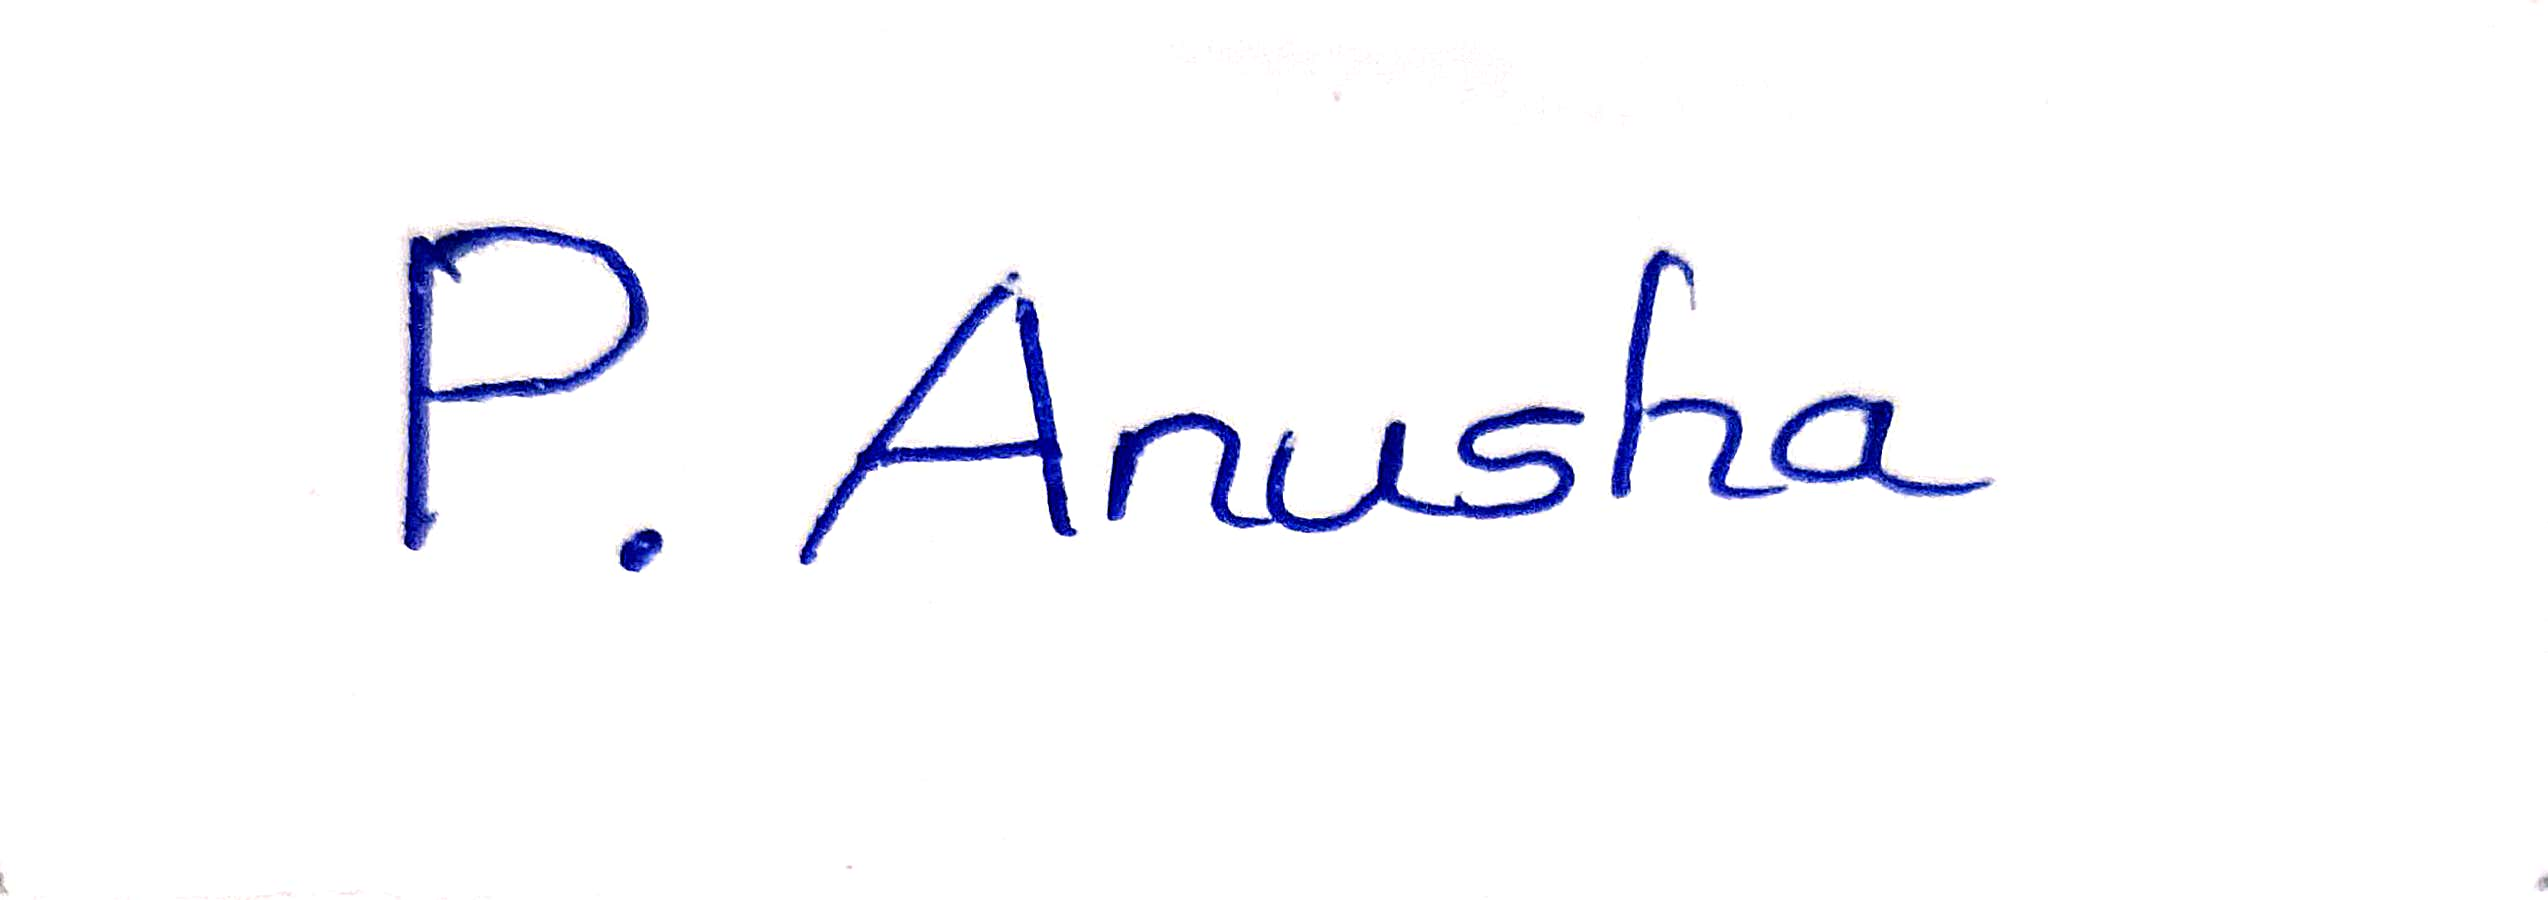 P. Anusha